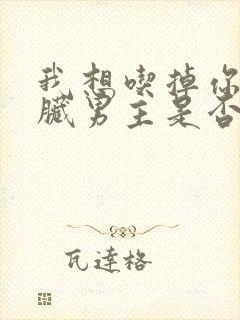 我想喫掉你
臟男主是否
瓦達格